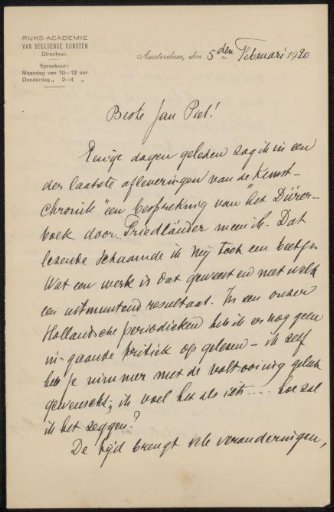 RIJKS-ACADEMIE
VAN BEELDENDE KUNSTEN
Directeur.
Spreekuur:
Maandag van 10—12 uur
Donderdag „ 2—4 „
Amsterdam, den 5den Februari 1920
Beste Jan Piet!
Eenige dagen geleden zag ik in een
der laatste afleveringen van de "Kunst-
chronik" een bespreking van "het Dürer-
boek door Friedländer meen ik. Dat
lezende schaamde ik mij toch een beetje.
Wat een werk is dat geweest en met welk
een uitmuntend resultaat. In een onzer
Hollandsche periodieken heb ik er nog geen
in-gaande kritiek op gelezen – ik zelf
heb je nimmer met de voltooiing geluk
gewenscht; ik voel het als iets .... hoe zal
ik het zeggen?
De tijd brengt vele veranderingen,